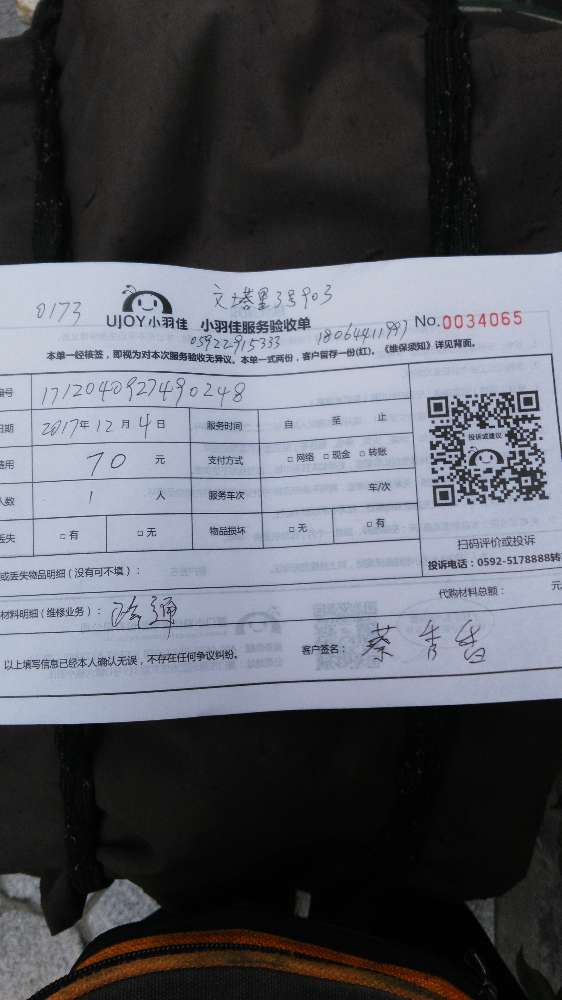 0173 文塔里3号903
UJOY小羽佳 小羽佳服务验收单 No.0034065
05922915333 18064411997
本单一经核签，即视为对本次服务验收无异议。本单一式两份，客户留存一份(红)。《维保须知》详见背面。
编号 1712040927490248
日期 2017年12月4日 服务时间 自 至 止
费用 70 元 支付方式 □网络 □现金 □转账
人数 1 人 服务车次 车/次
丢失 □有 □无 物品损坏 □无 □有
投诉或建议
扫码评价或投诉
投诉电话：0592-5178888转
或丢失物品明细（没有可不填）：
材料明细（维修业务）： 疏通 代购材料总额： 元
以上填写信息已经本人确认无误，不存在任何争议纠纷。 客户签名：蔡香香